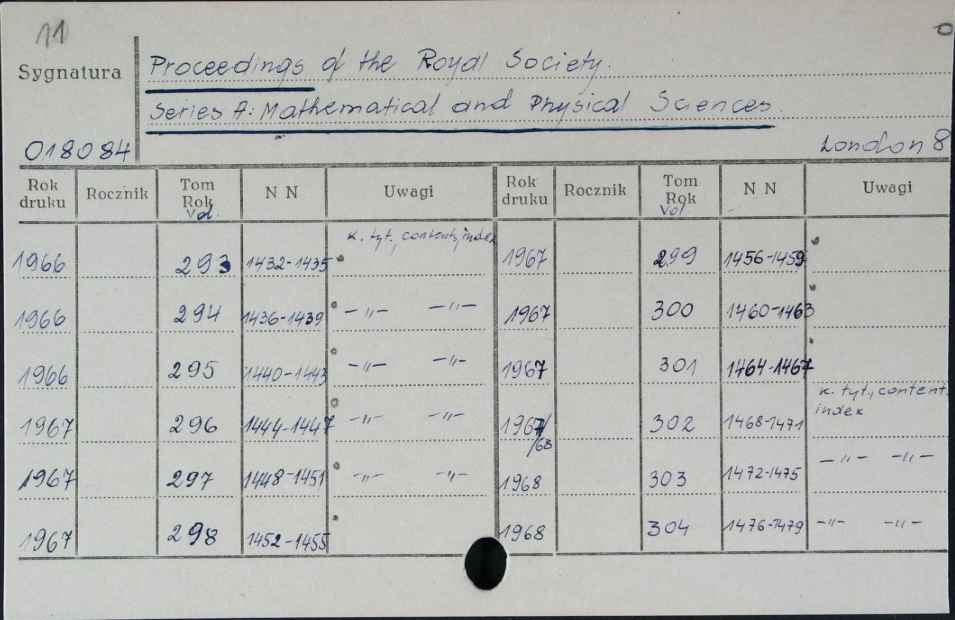 11
Sygnatura
Proceedings of the Royal Society.
Series A: Mathematical and Physical Sciences.
018084
London 8
Rok druku Rocznik Tom Rok Vol. N N Uwagi Rok druku Rocznik Tom Rok Vol N N Uwagi
1966 293 1432-1435 k. tyt., contents, index 1967 299 1456-1459
1966 294 1436-1439 -〃- -〃- 1967 300 1460-1463
1966 295 1440-1443 -〃- -〃- 1967 301 1464-1467
1967 296 1444-1447 -〃- -〃- 1967/68 302 1468-1471 k. tyt., content, index
1967 297 1448-1451 -〃- -〃- 1968 303 1472-1475 -〃- -〃-
1967 298 1452-1455 1968 304 1476-1479 -〃- -〃-